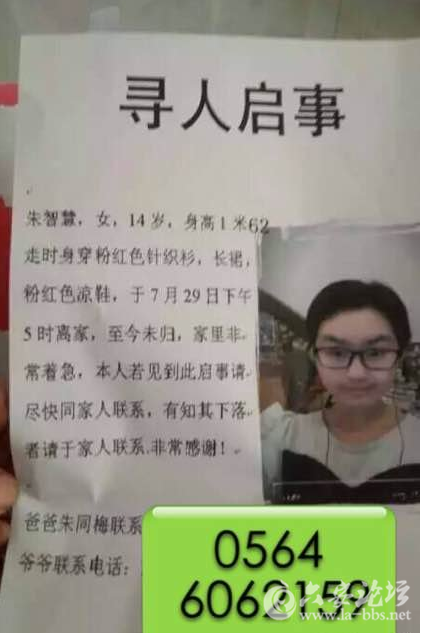 寻人启事
朱智慧，女，14岁，身高1米62
走时身穿粉红色针织衫，长裙，
粉红色凉鞋，于7月29日下午
5时离家，至今未归，家里非
常着急，本人若见到此启事请
尽快同家人联系，有知其下落
者请于家人联系.非常感谢！
爸爸朱同梅联系
爷爷联系电话：
0564
6062159
六安论坛
www.la-bbs.net